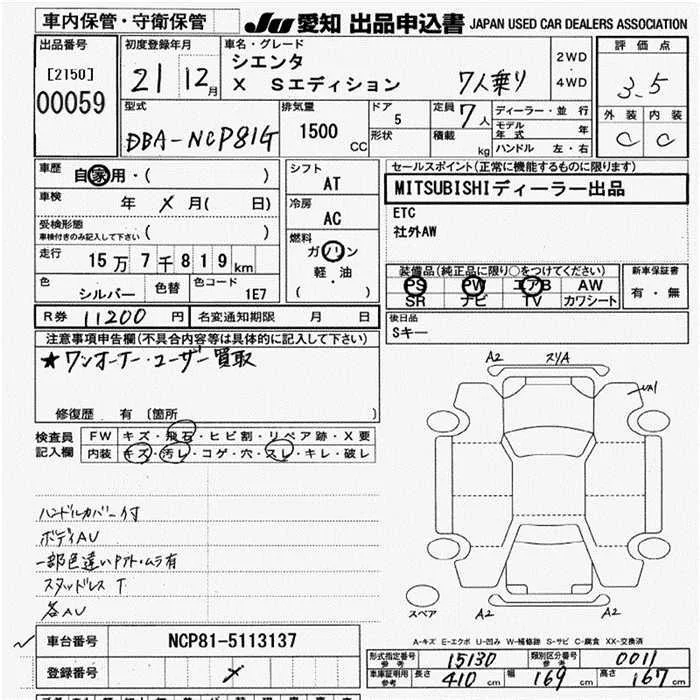 車内保管・守衛保管
JU 愛知 出品申込書 JAPAN USED CAR DEALERS ASSOCIATION
出品番号
[2150]
00059
初度登録年月
21 12月
車名・グレード
シエンタ
X Sエディション 7人乗り
2WD
4WD
評価点
3.5
外装 内装
C C
型式
DBA-NCP81G
排気量
1500 CC
ドア
5
形状
定員
7人
積載
kg
ディーラー・並行
モデル年式 年
ハンドル 左・右
車歴
自家用・( )
車検 年 メ 月( 日)
受検形態
車検付きのみ記入して下さい ( )
走行
15万7千819km
色
シルバー
色替
色コード
1E7
シフト
AT
冷房
AC
燃料
ガソリン
軽・油
( )
セールスポイント(正常に機能するものに限ります)
MITSUBISHIディーラー出品
ETC
社外AW
装備品(純正品に限り○をつけてください)
PS PW エアB AW
SR ナビ TV カワシート
新車保証書
有・無
後日品
Sキー
R券 11200 円
名変通知期限 月 日
注意事項申告欄(不具合内容等は具体的に記入して下さい)
★ワンオーナー・ユーザー買取
修復歴 有 〔箇所 〕
検査員記入欄
FW キズ・飛石・ヒビ割・リペア跡・X要
内装 キズ・汚レ・コゲ・穴・スレ・キレ・破レ
ハンドルカバー付
ボディAU
一部色違いタッチ・ムラ有
スタッドレス T
各AU
A2 スリA
UA1
スペア A2 A2
A-キズ E-エクボ U-凹み W-補修跡 S-サビ C-腐食 XX-交換済
車台番号 NCP81-5113137
登録番号 メ
形式指定番号 参考 15130
類別区分番号 参考 0011
車庫証明用 参考 長さ 410 cm 幅 169 cm 高さ 167 cm